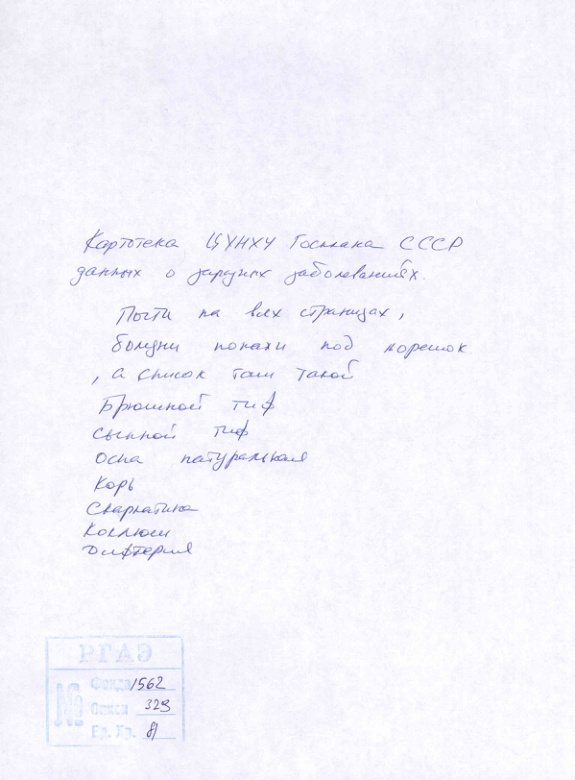 Картотека ЦУНХУ Госплана СССР
данных о заразных заболеваниях.
Почти на всех страницах,
болезни попали под корешок
, а список там такой
Брюшной тиф
сыпной тиф
Оспа натуральная
Корь
Скарлатина
Коклюш
Дифтерия
РГАЭ
№ Фонда 1562
Описи 329
Ед. Хр.